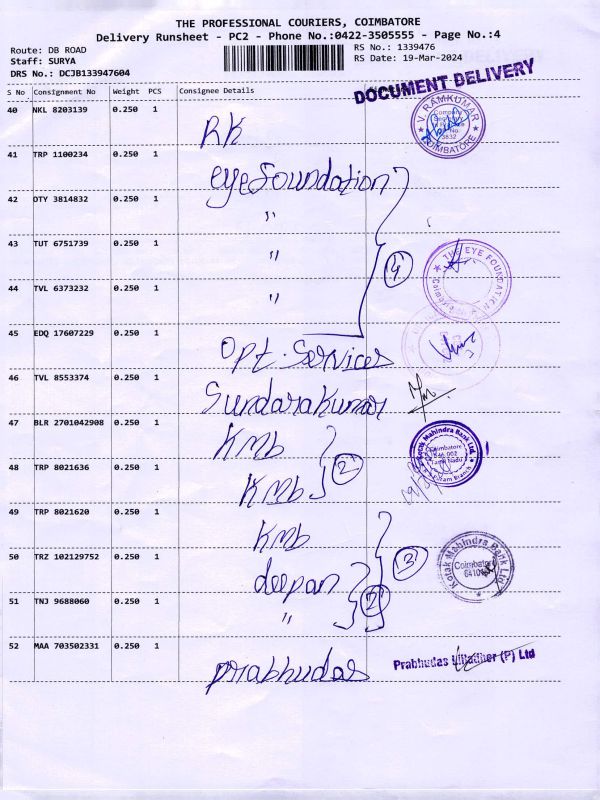 THE PROFESSIONAL COURIERS, COIMBATORE
Delivery Runsheet - PC2 - Phone No.:0422-3505555 - Page No.:4
Route: DB ROAD
Staff: SURYA
DRS No.: DCJB133947604
RS No.: 1339476
RS Date: 19-Mar-2024
DOCUMENT DELIVERY
S No Consignment No Weight PCS Consignee Details
40 NKL 8203139 0.250 1 RK
V. RAMKUMAR
COIMBATORE
41 TRP 1100234 0.250 1 eye foundation
42 OTY 3814832 0.250 1 "
43 TUT 6751739 0.250 1 "
4
THE EYE FOUNDATION
44 TVL 6373232 0.250 1 "
45 EDQ 17607229 0.250 1 Opt. Services
46 TVL 8553374 0.250 1 Sundarakumar
47 BLR 2701042908 0.250 1 KMB
Kotak Mahindra Bank Ltd.
Coimbatore
Tamil Nadu
48 TRP 8021636 0.250 1 KMB
2
49 TRP 8021620 0.250 1 KMB
3
Kotak Mahindra Bank Ltd
Coimbatore
50 TRZ 102129752 0.250 1 deepan
51 TNJ 9688060 0.250 1 "
2
52 MAA 703502331 0.250 1 prabhudas
Prabhudas Lilladher (P) Ltd